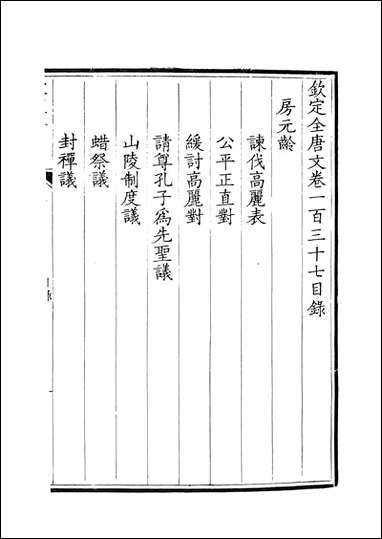 欽定全唐文卷一百三十七目錄
房元齡
諫伐高麗表
公平正直對
緩討高麗對
請尊孔子為先聖議
山陵制度議
蜡祭議
封禪議